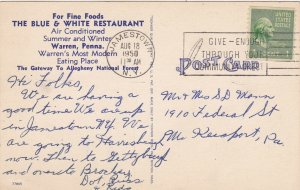 For Fine Foods
THE BLUE & WHITE RESTAURANT
Air Conditioned
Summer and Winter
Warren, Penna.
Warren's Most Modern
Eating Place
The Gateway To Allegheny National Forest
JAMESTOWN
AUG 18
1950
11 AM
N.Y.
GIVE - ENOUGH
THROUGH YOUR
COMMUNITY
POST CARD
Hi Folks,
We are having a
good time. We are up
in Jamestown NY. We
are going to Harrisburg
now. Then to Gettysburg
and over to
Dot,
& Kids
Mr & Mrs S D Mann
1910 Federal St
McKeesport, Pa.